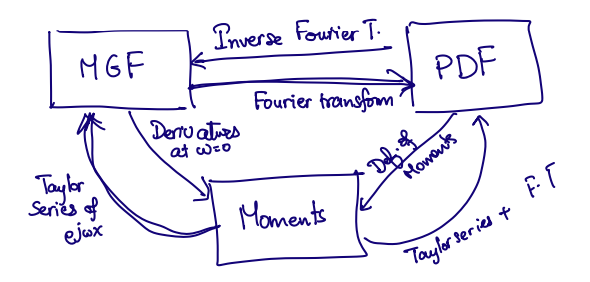 Inverse Fourier T.
MGF
PDF
Fourier transform
Derivatives
at ω=0
Def. of
Moments
Taylor
Series of
ejωx
Moments
Taylor series + F.T